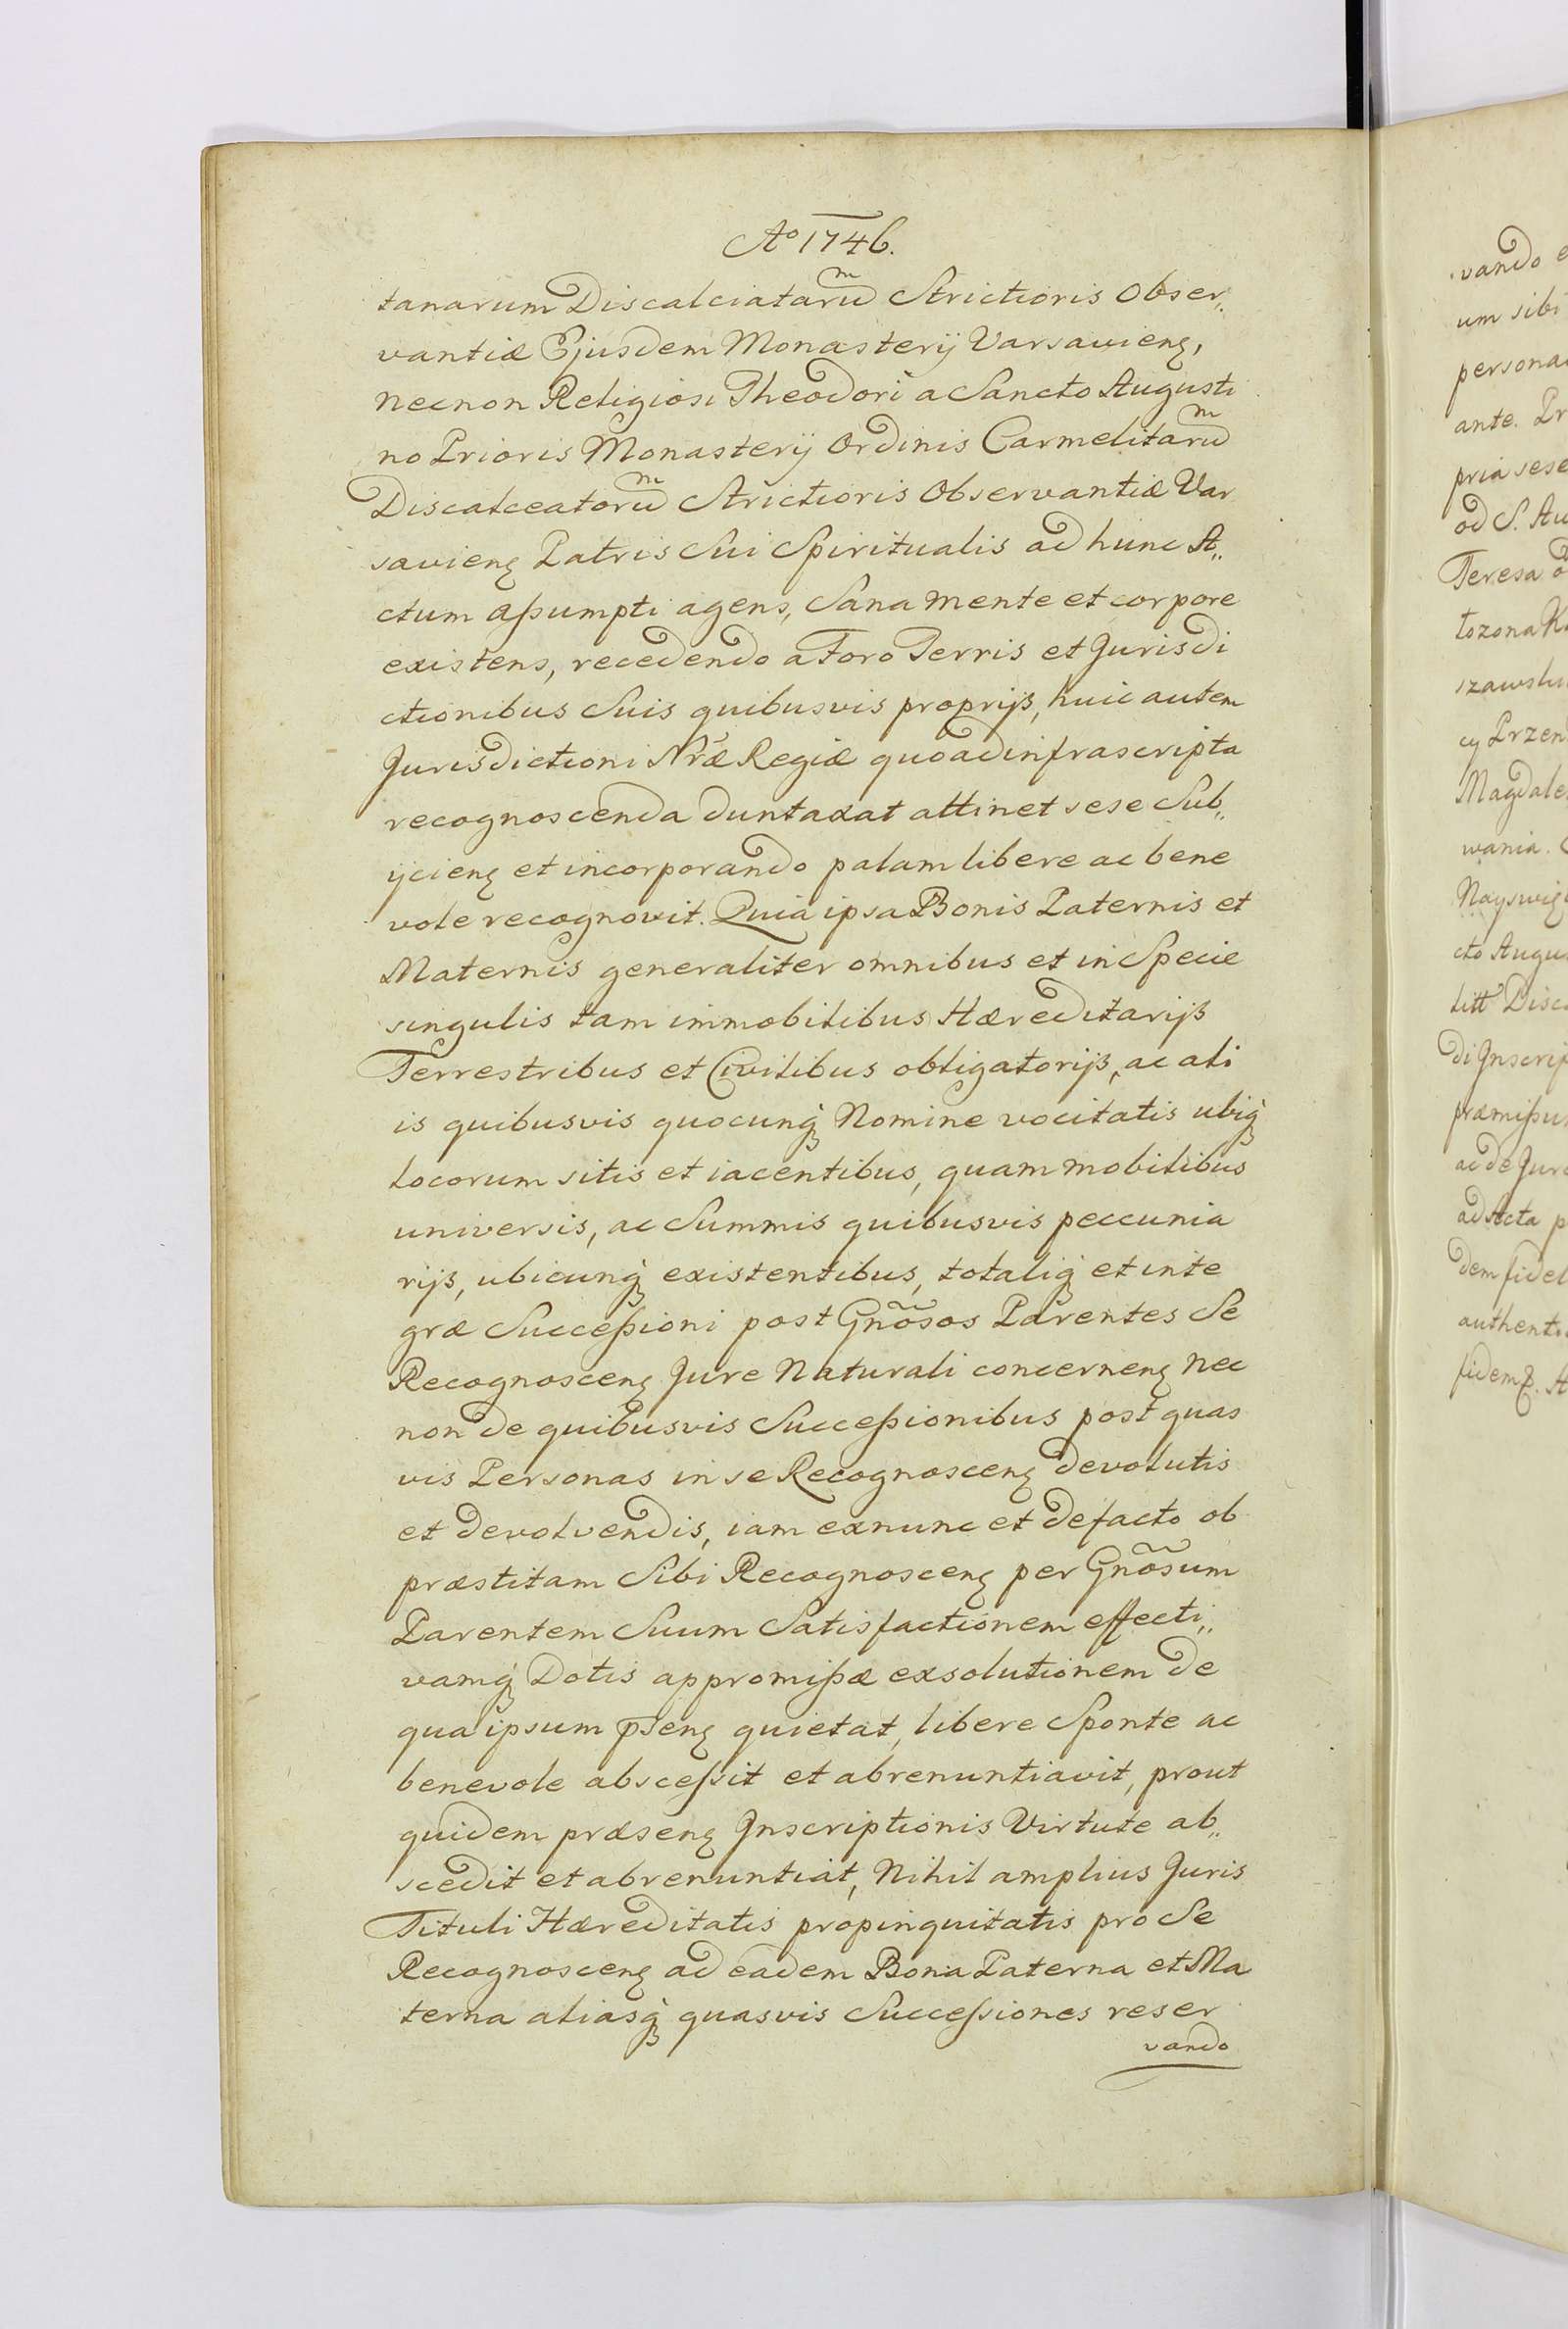 Ao 1746.
tanarum Discalciatarum Strictioris Obser„
vantiæ Ejusdem Monasterij Varsavieng,
necnon Religiosi Theodori a Sancto Augusti
no Prioris Monasterij Ordinis Carmelitarum
Discalceatorum Strictioris Observantiæ Var
savieng Patris Sui Spiritualis ad hunc A„
ctum aſsumpti agens, Sana mente et corpore
existens, recedendo a Foro Terris et Jurisdi
ctionibus Suis quibusvis proprijs, huic autem
Jurisdictioni Nræ Regiæ quoad infrascripta
recognoscenda duntaxat attinet sese Sub„
ijcieng et incorporando palam libere ac bene
vole recognovit. Quia ipsa Bonis Paternis et
Maternis generaliter omnibus et in Specie
singulis tam immobilibus Hæreditarijs
Terrestribus et Civilibus obligatorijs, ac ali
is quibusvis quocunq Nomine vocitatis ubiq
locorum sitis et iacentibus, quam mobilibus
universis, ac Summis quibusvis peccunia
rijs, ubicunq existentibus, totaliq et inte
græ Succeſsioni post Gnõsos Parentes Se
Recognosceng Jure Naturali concerneng nec
non de quibusvis Succeſsionibus post quas
vis Personas in se Recognosceng devolutis
et devolvendis, iam exnunc et defacto ob
præstitam Sibi Recognosceng per Gnõsum
Parentem Suum Satisfactionem effecti„
vamq Dotis appromiſsæ exsolutionem de
qua ipsum pseng quietat, libere Sponte ac
benevole absceſsit et abrenuntiavit, prout
quidem præseng Inscriptionis Virtute ab„
scedit et abrenuntiat, Nihil amplius Juris
Tituli Hæreditatis propinquitatis pro Se
Recognosceng ad eadem Bona Paterna et Ma
terna aliasq quasvis Succeſsiones reser
vando
vando
um sibi
persona
ante.
pria sese
od S. Au
Teresa
tozona
cy Przen
Magdale
wania.
cto Augu
litt Disc
di Inscrip
præmiſsu
ac de Jure
ad Acta p
dem fidel
authenti
fidemq.